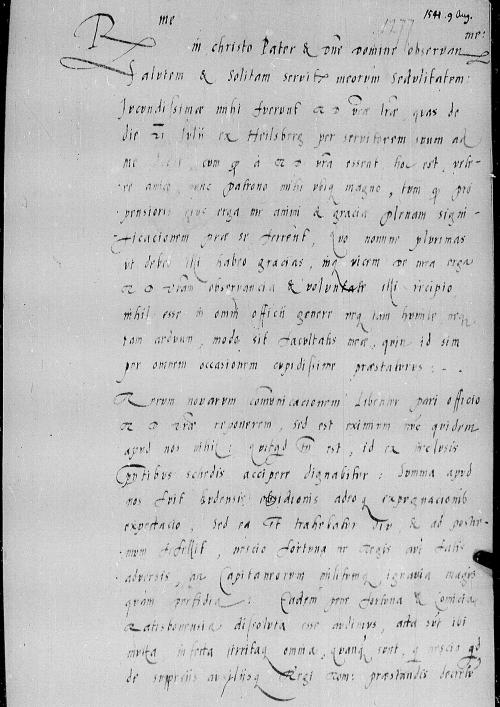 1541. 9 Aug.
1277
R me in christo Pater & Dne Domine observan me:
Salutem & Solitam servit meorum Sedulitatem:
Jucundissimæ mihi fuerunt R D vræ lræ, quas de
die XI Julii ex Heilsberg per servitorem suum ad
me cum q a R D vra essent hoc est, vete-
re amico nunc patrono mihi ubiq magno, tum q pro
pensioris ejus erga me animi & gracia plenam signi-
ficacionem præ se ferrent, Quo nomine plurimas
ut debeo illi habeo gracias, inq vicem de mea erga
R D vram observancia & voluntate illi recipio
nihil esse in omni officii genere neq tam humile neq
tam arduum, modo sit facultatis meæ, quin id sim
per omnem occasionem cupidissime præstaturus: -
Rerum novarum comunicacionem libenter pari officio
R D vræ reponerem, sed est eximium nuc quidem
apud nos nihil: quitqd tn est, id ex inclusis
pntibus schedis accipere dignabitur: Summa apud
nos fuit Budensis obsidionis adeoq expugnacionis
expectacio, Sed ea trahebatur diu, & ad postre-
mum fefellit, nescio fortuna ne Regis aut fatis
adversis, an Capitaneorum militumq ignavia magis
quam perfidia: Eadem pene fortuna & Comicia
Ratisbonensia dissoluta esse audimus, acta sut ibi
multa infecta ferritaq omnia, quanq sunt, q nescio qd
de suppeciis auxiliisq Regi Rom: præstandis decretu